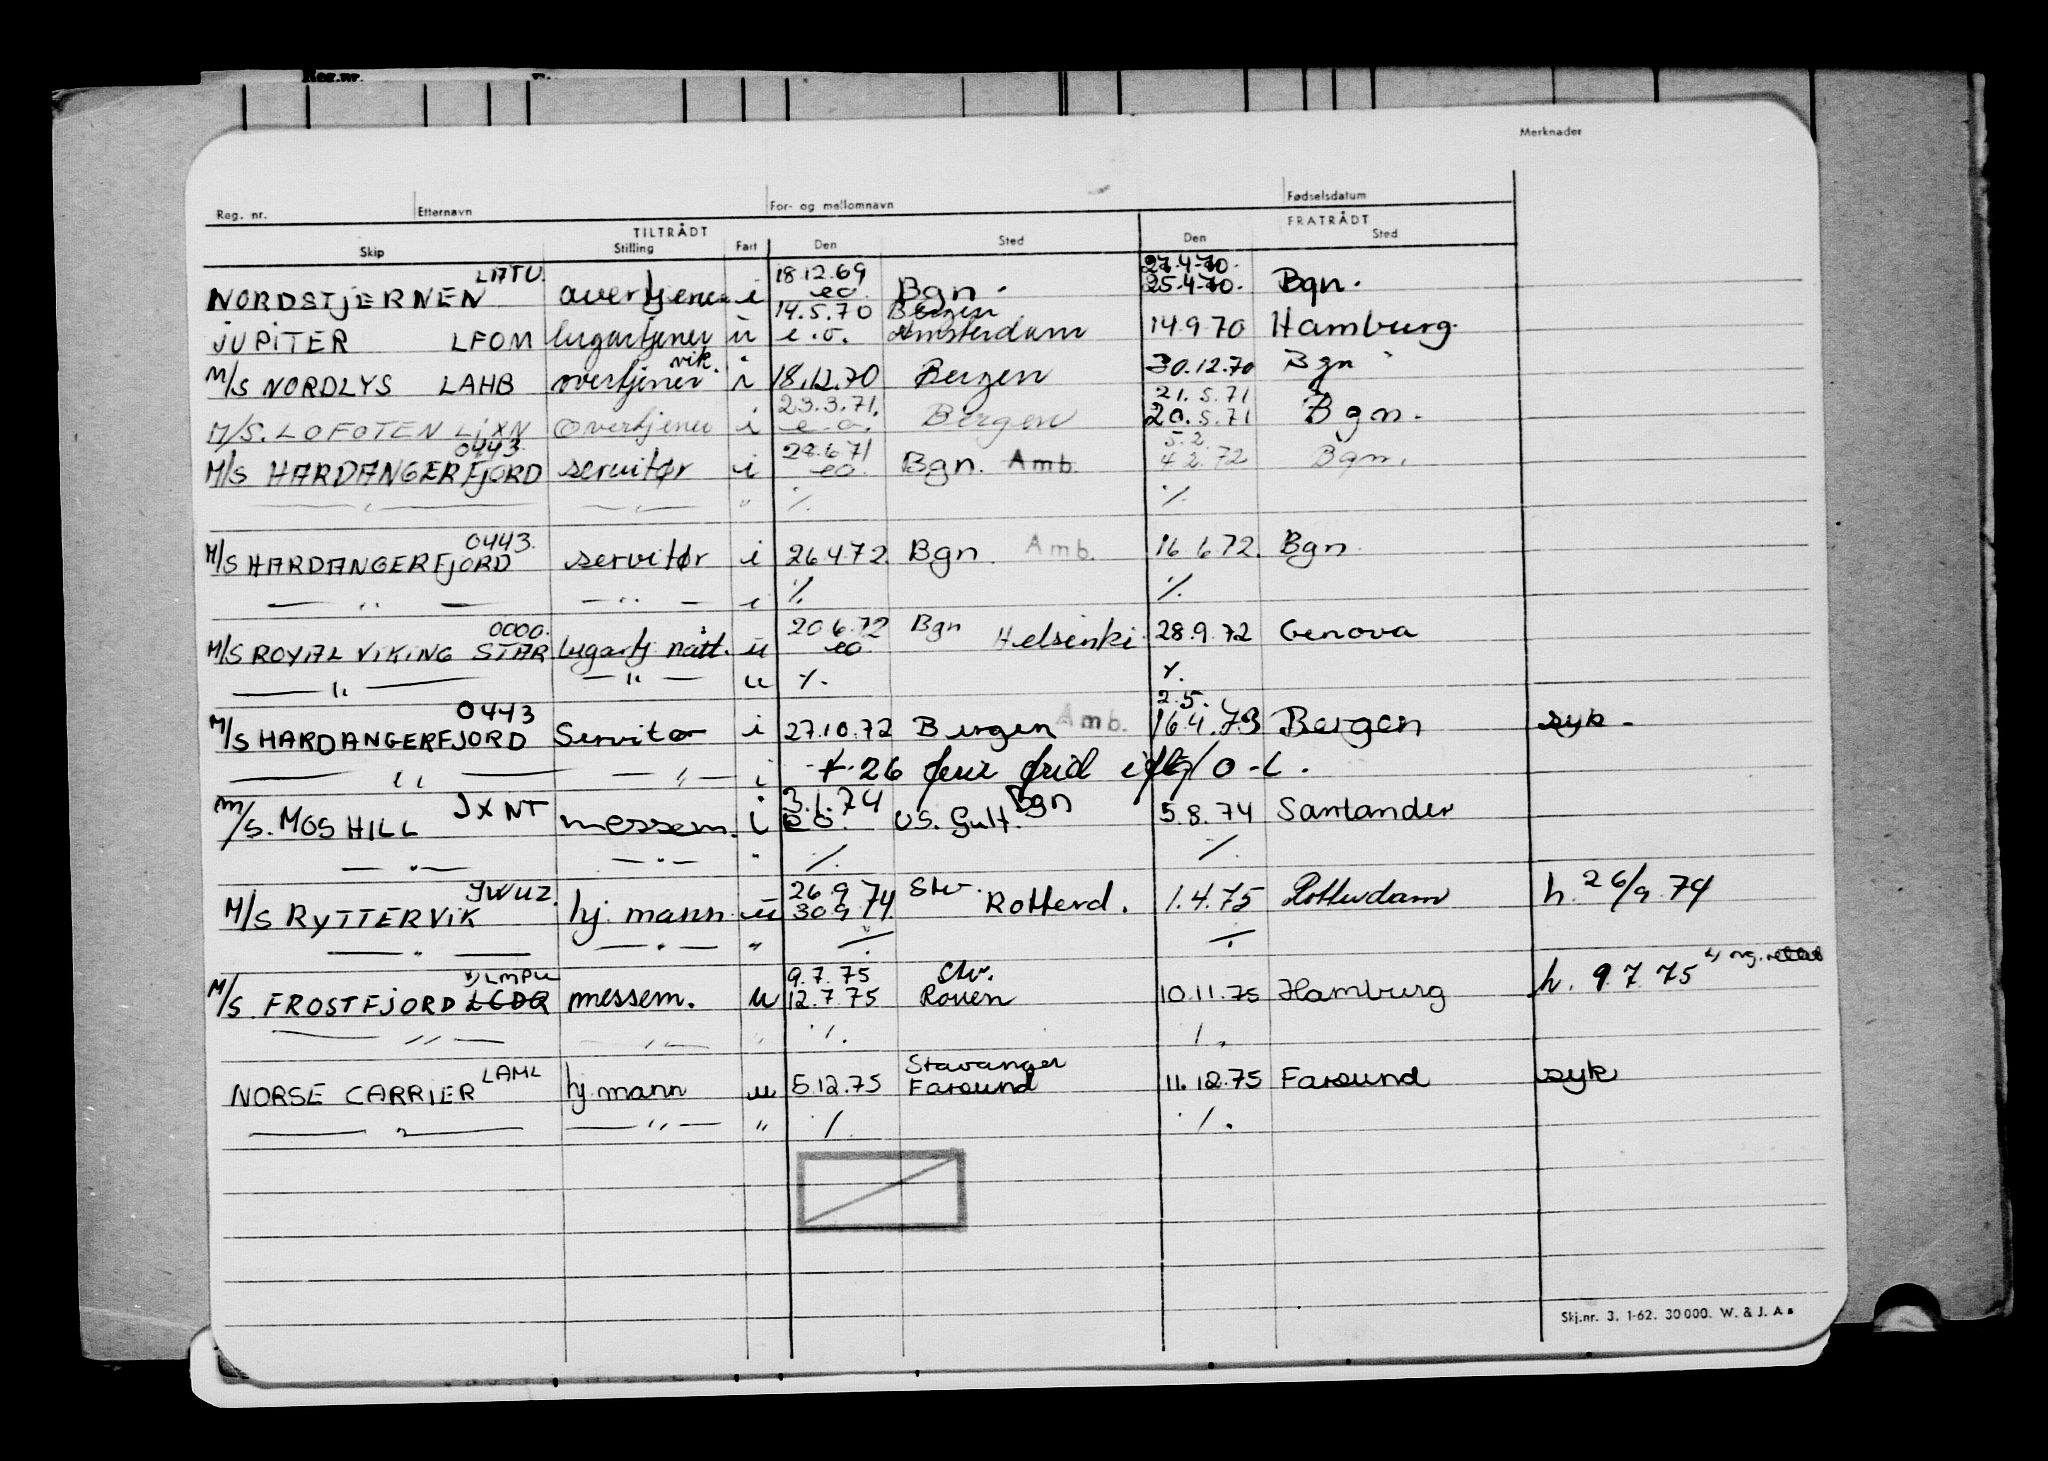 Reg.nr.
Merknader
Reg. nr. Etternavn For- og mellomnavn Fødselsdatum
TILTRÅDT FRATRÅDT
Skip Stilling Fart Den Sted Den Sted
LATU 18.12.69 27.4.70.
NORDSTJERNEN overtjener i eo. Bgn. 25.4.70. Bgn.
14.5.70 Bergen
JUPITER LFOM lugartjener u e.o. Amsterdam 14.9.70 Hamburg.
vik.
M/S NORDLYS LAHB overtjener i 18.12.70 Bergen 30.12.70 Bgn
23.3.71. 21.5.71
M/S. LOFOTEN LJXN overtjener i e.o. Bergen 20.5.71 Bgn.
0443. 28.6.71 5.2.
M/S HARDANGERFJORD servitør i eo. Bgn. Amb. 4.2.72 Bgn.
— " — — " — " ./. ./.
0443.
M/S HARDANGERFJORD servitør i 26.4.72. Bgn. Amb. 16.6.72. Bgn.
— " — — " — i ./. ./.
0000. 20.6.72 Bgn
M/S ROYAL VIKING STAR lugartj. natt. u eo. Helsinki 28.9.72 Genova
— " — — " — u ./. ./.
0443 2.5.
M/S HARDANGERFJORD Servitør i 27.10.72 Bergen Amb. 16.4.73 Bergen syk.
— " — — " — i + 26 frid
JXNT 3.1.74 Bgn
M/S. MOSHILL messem. i eo. US. Gulf. 5.8.74 Santander
— " — — " — " ./. ./.
JWUZ. 26.9.74 Stv.
M/S RYTTERVIK hj. mann u 30.9.74. Rotterd. 1.4.75 Rotterdam h. 26/9.74
— " — — " — " ./. ./.
x) LMPU 9.7.75 Stv.
M/S FROSTFJORD LCDQ messem. u 12.7.75 Rouen 10.11.75 Hamburg h. 9.7.75
— " — — " — " ./. ./.
LAML Stavanger
NORSE CARRIER hj. mann u 5.12.75 Farsund 11.12.75 Farsund syk
— " — — " — " ./. ./.
Skj.nr. 3. 1-62. 30000. W. & J. A s